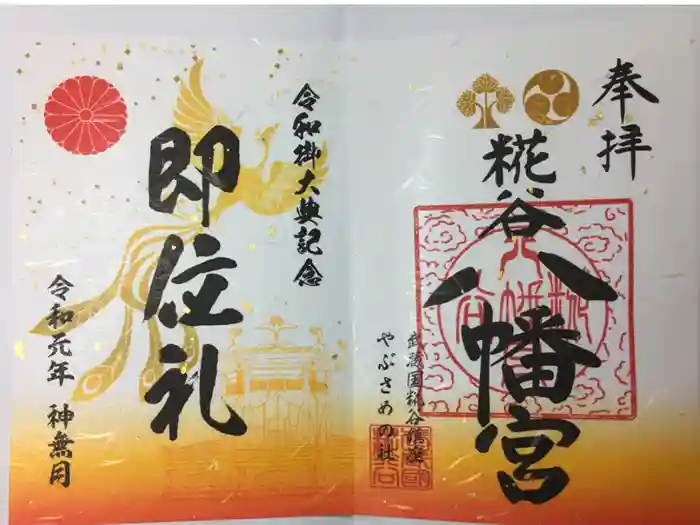 奉拝
糀谷
八幡宮
武蔵国糀谷鎮座
やぶさめの社
令和御大典記念
即位礼
令和元年 神無月